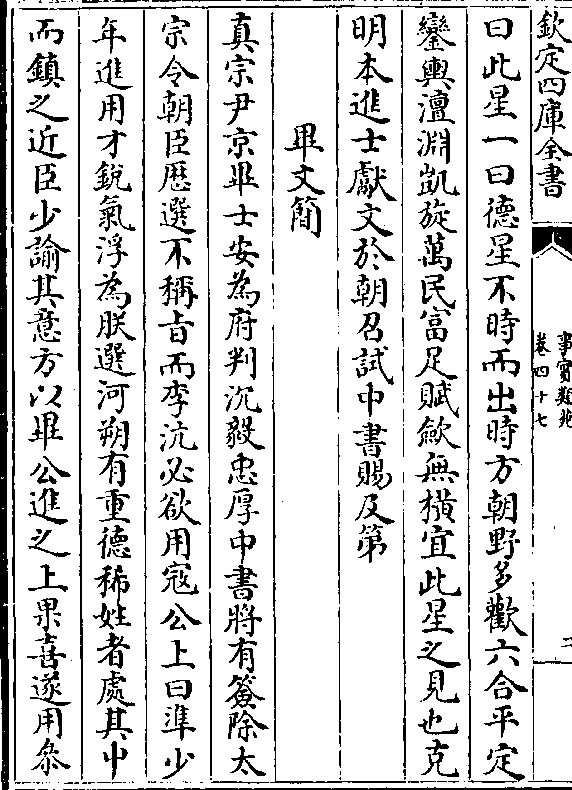 欽定四庫全書
事實類苑
卷四十七
二
曰此星一曰德星不時而出時方朝野多歡六合平定
鑾輿澶淵凱旋萬民富足賦斂無横宜此星之見也克
明本進士獻文於朝召試中書賜及第
畢文簡
真宗尹京畢士安為府判沉毅忠厚中書將有簽除太
宗令朝臣歴選不稱旨而李沆必欲用冦公上曰準少
年進用才銳氣浮為朕選河朔有重德稀姓者處其中
而鎮之近臣少諭其意方以畢公進之上果喜遂用叅